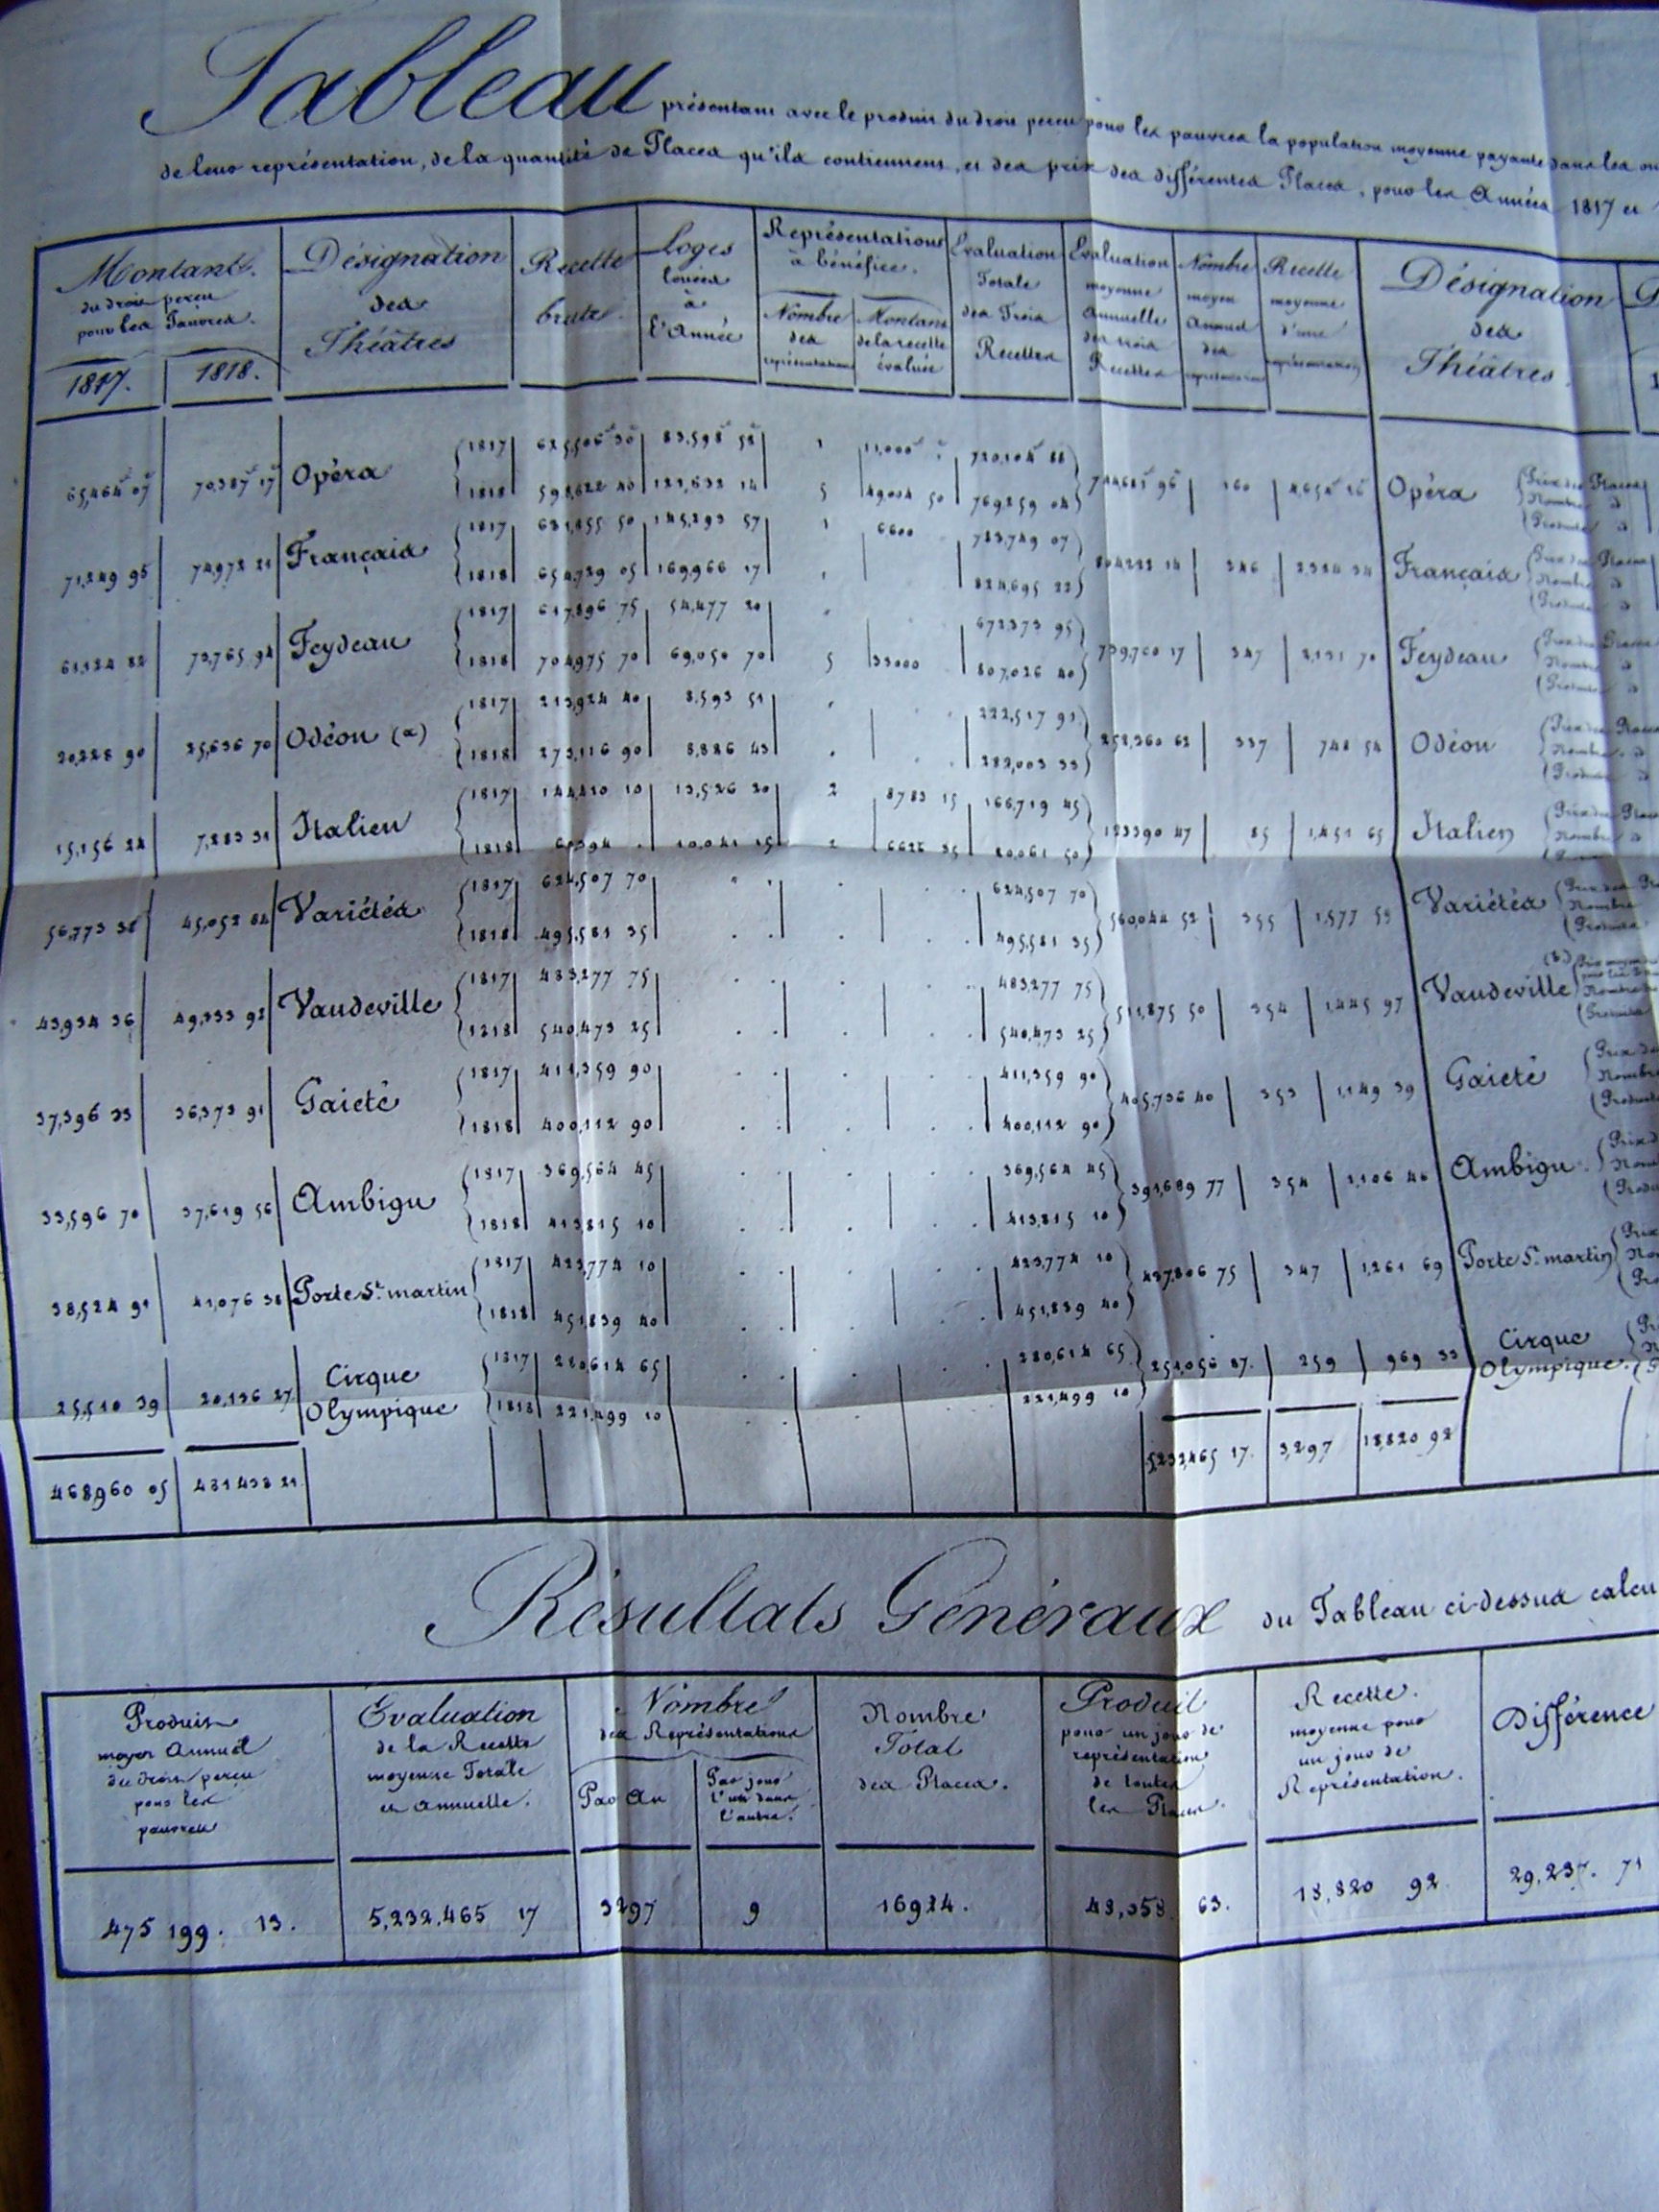 Tableau présentant avec le produit du droit perçu pour les pauvres la population moyenne payante dans les
de leur représentation, de la quantité de Places qu'ils contiennent, et des prix des différentes Places, pour les Années 1817 et
Montant du droit perçu pour les Pauvres. 1817. 1818.
Désignation des Théâtres
Recette brute.
Loges louées à l'Année
Représentations à bénéfice. Nombre des représentations Montant de la recette évaluée
Évaluation Totale des Trois Recettes
Évaluation moyenne annuelle des trois Recettes
Nombre moyen annuel des représentations
Recette moyenne d'une représentation
Désignation des Théâtres.
65,464 07 70,387 17 Opéra 1817 625,506 30 83,598 58 1 11,000 720,104 88 160 Opéra
1818 598,622 40 121,632 14 5 49,004 50 769,259 04
71,249 95 74,972 21 Français 1817 631,855 50 145,293 57 1 6600 783,749 07 804,222 14 346 2,324 34 Français
1818 654,729 05 169,966 17 824,695 22
61,124 82 73,765 94 Feydeau 1817 617,896 75 54,477 20 672,373 95 739,700 17 347 2,131 70 Feydeau
1818 704,975 70 69,050 70 5 33000 807,026 40
20,228 90 25,636 70 Odéon (a) 1817 213,924 40 8,593 51 222,517 91 252,360 62 337 748 54 Odéon
1818 273,116 90 8,886 43 282,003 33
15,156 24 7,283 31 Italien 1817 144,410 10 13,526 20 2 8783 15 166,719 45 123390 47 85 1,451 65 Italien
1818 10,041 15 2 6626 35 80,061 50
56,773 38 45,052 84 Variétés 1817 624,507 70 624,507 70 560,044 52 355 1,577 59 Variétés
1818 495,581 35 495,581 35
43,934 36 49,133 92 Vaudeville 1817 483,277 75 483,277 75 511,875 50 354 1,445 97 Vaudeville
1818 540,473 25 540,473 25
37,396 33 36,373 91 Gaieté 1817 411,359 90 411,359 90 405,736 40 353 1,149 39 Gaieté
1818 400,112 90 400,112 90
33,596 70 37,619 56 Ambigu 1817 369,564 45 369,564 45 391,689 77 354 1,106 46 Ambigu
1818 413,815 10 413,815 10
38,524 91 41,076 38 Porte St. martin 1817 423,774 10 423,774 10 437,806 75 347 1,261 69 Porte St. martin
1818 451,839 40 451,839 40
25,510 39 20,136 27 Cirque Olympique 1817 280,614 65 280,614 65 251,056 87. 259 969 33 Cirque Olympique.
1818 221,499 10 221,499 10
468,960 05 481438 21 5,232,465 17. 3,297 18,820 92
Résultats Généraux du Tableau ci-dessus calcu
Produit moyen Annuel du droit perçu pour les pauvres
Évaluation de la Recette moyenne Totale et annuelle.
Nombre des Représentations Par An Par jour l'un dans l'autre.
Nombre Total des Places.
Produit pour un jour de représentation de toutes les Places.
Recette moyenne pour un jour de Représentation.
Différence
475 199. 13. 5,232,465 17 3297 9 16924. 48,058. 63. 18,820 92. 29,237. 71